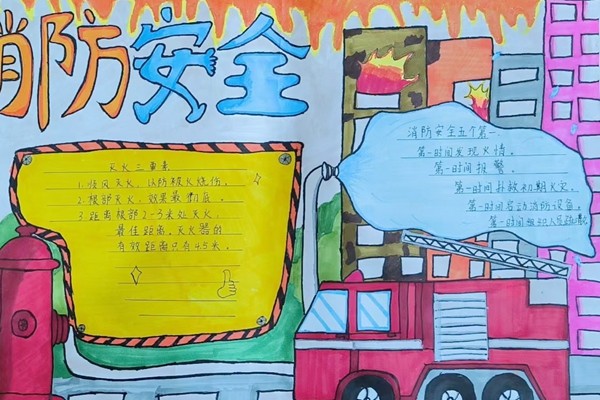 消防安全
灭火三要素
1.顺风灭火,以防被火烧伤。
2.根部灭火,效果最明显。
3.距离根部2-3米处灭火,
最佳距离。灭火器的
有效距离只有4.5米。
消防安全五个第一
第一时间发现火情。
第一时间报警。
第一时间扑救初期火灾。
第一时间启动消防设备。
第一时间组织人员疏散